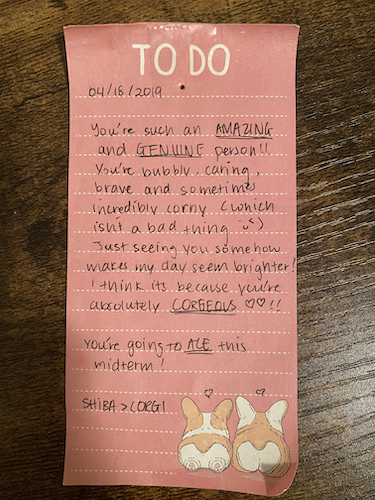 TO DO
04/18/2019
You're such an AMAZING
and GENUINE person!!
You're bubbly, caring,
brave and sometimes
incredibly corny (which
isn't a bad thing
Just seeing you somehow
makes my day seem brighter!
I think its because you're
absolutely CORGEOUS ♡♡!!
You're going to ACE this
midterm!
SHIBA > CORGI